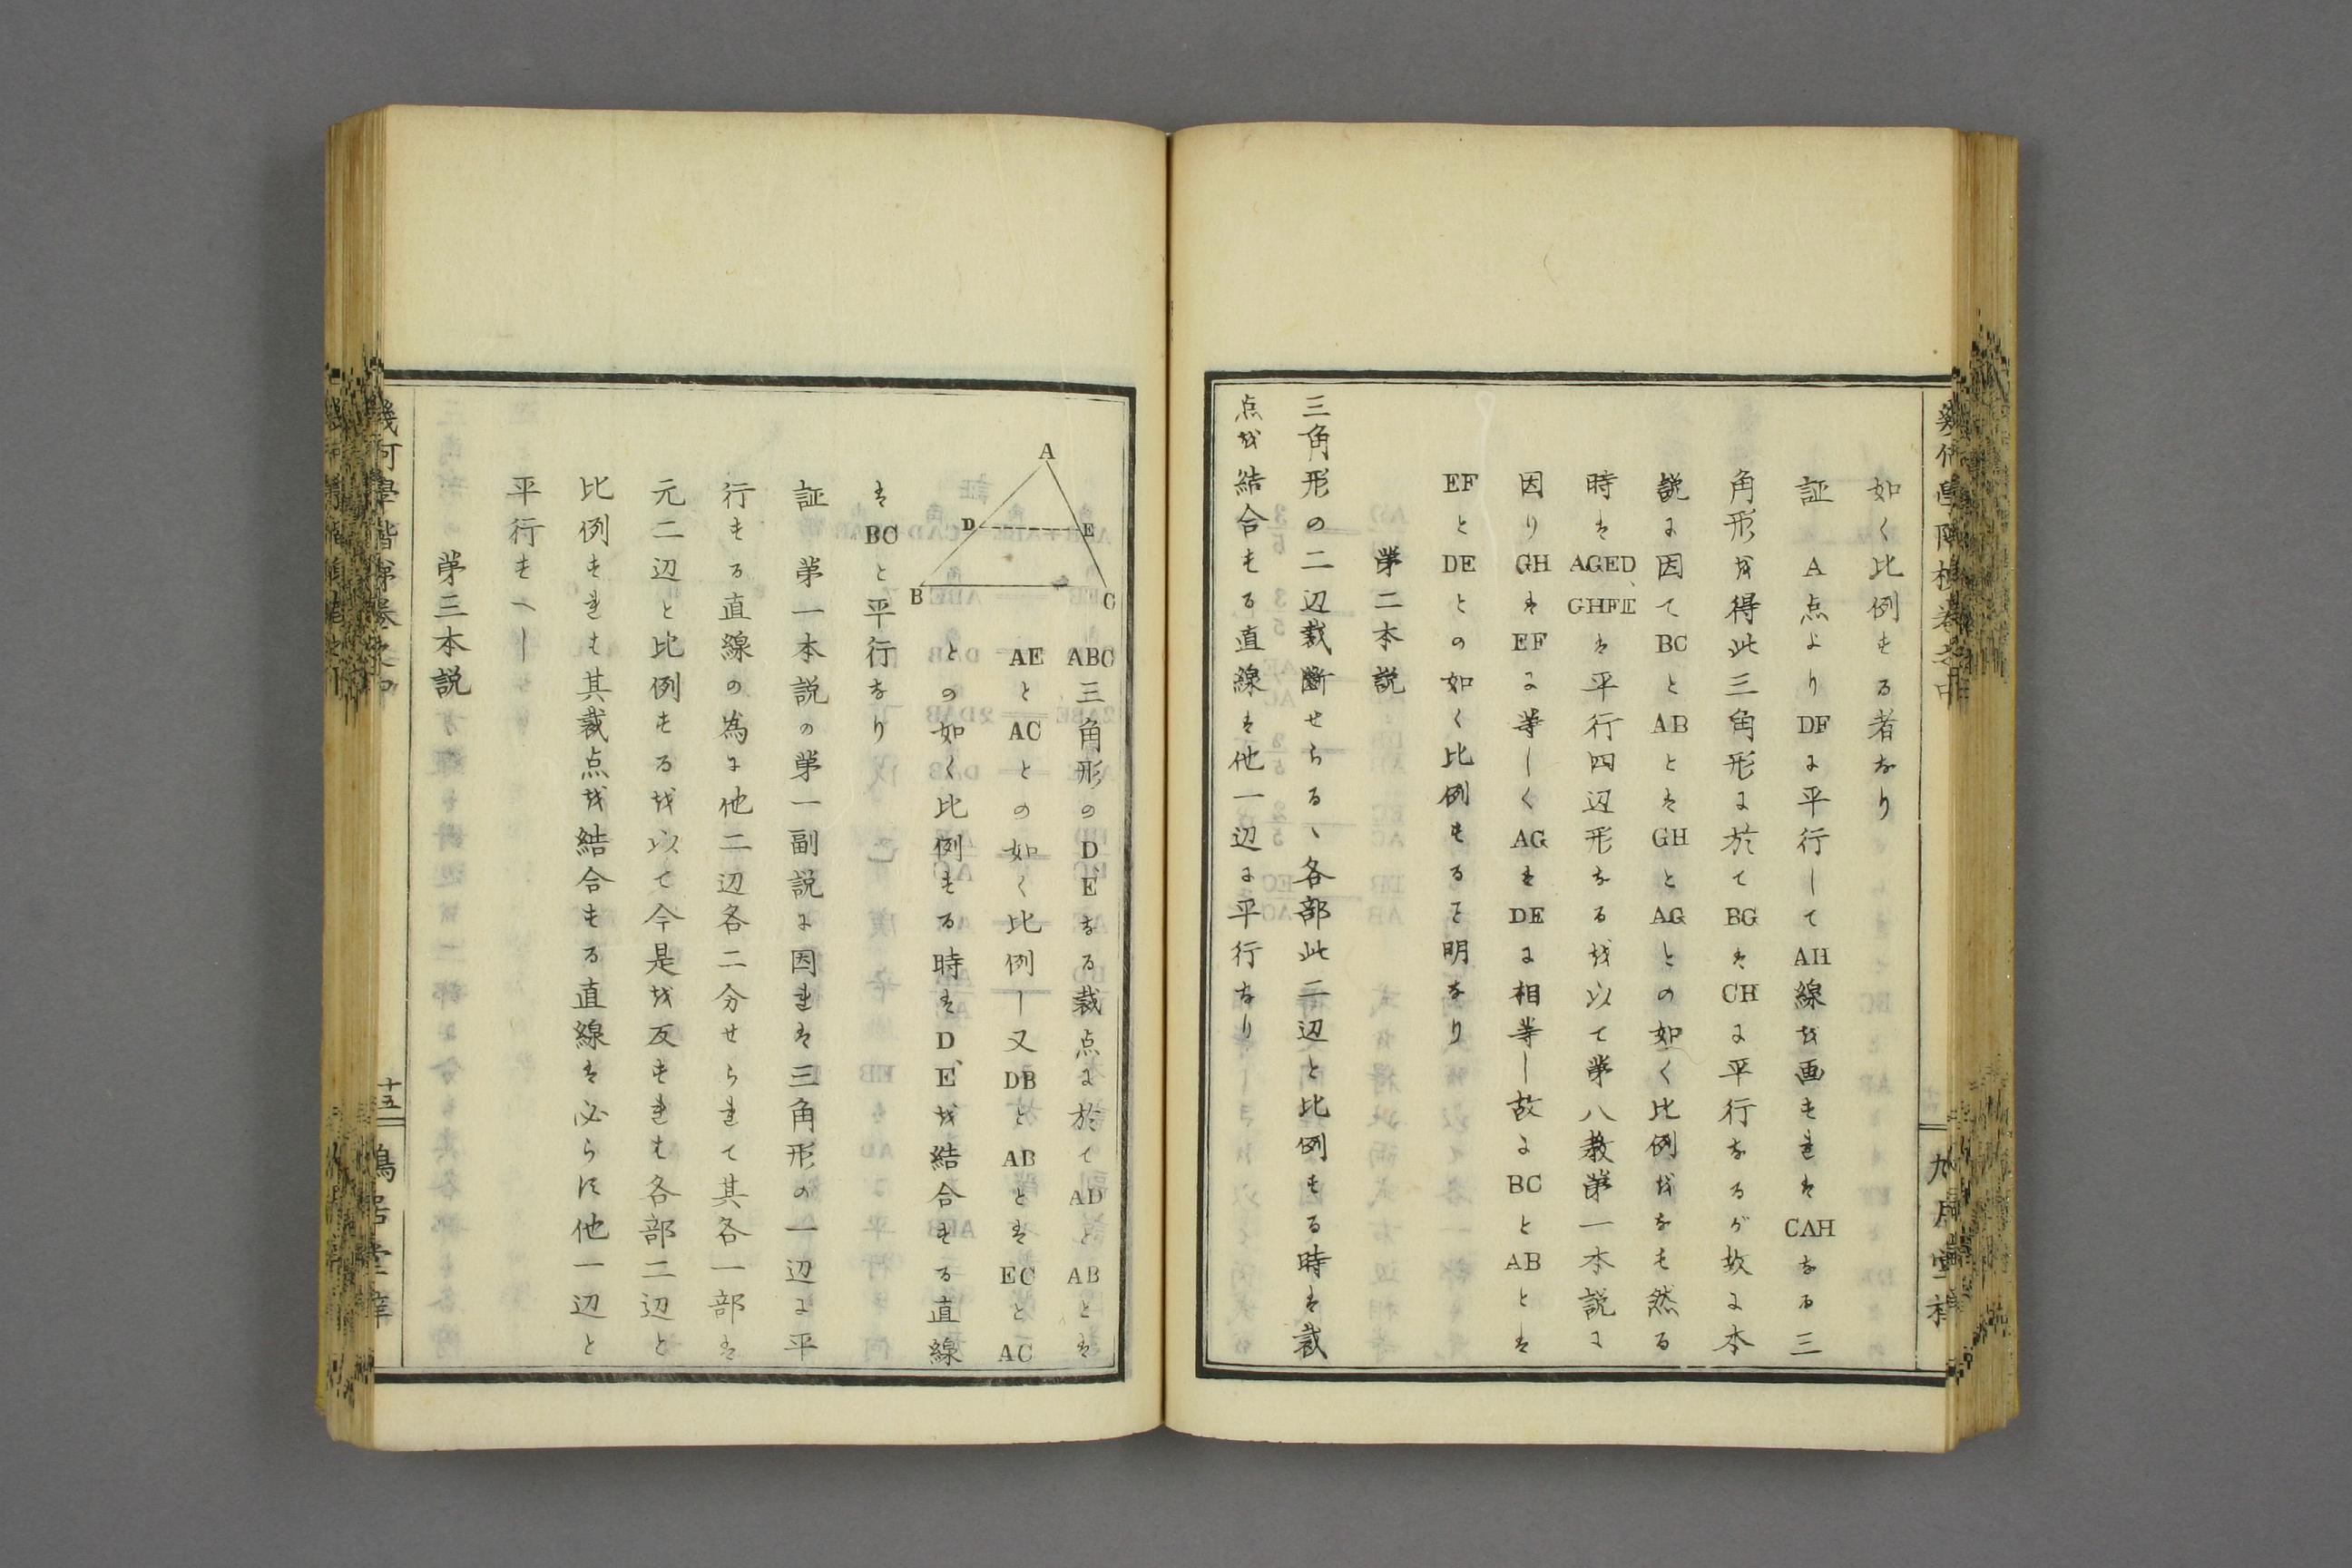 如く比例する者なり
証 A点よりDFに平行してAH線を画すればCAHなる三
角形を得此三角形に於てBGはCHに平行なるが故に本
説に因てBCとABとはGHとAGとの如く比例をなす然る
時はAGED、GHFEは平行四辺形なるを以て第八教第一本説に
因りGHはEFに等しくAGはDEに相等し故にBCとABとは
EFとDEとの如く比例するを明なり
第二本説
三角形の二辺裁斷せらるヽ各部此二辺と比例する時は裁
点を結合する直線は他一辺に平行なり
A
D
E
B
C
ABC三角形のD、Eなる裁点に於てADとABとは
AEとACとの如く比例し又DBとABとはECとAC
との如く比例する時はD、Eを結合する直線
はBCと平行なり
証 第一本説の第一副説に因れば三角形の一辺に平
行する直線の為に他二辺各二分せられて其各一部は
元二辺と比例するを以て今是を反すれは各部二辺と
比例すれは其裁点を結合する直線は必らす他一辺と
平行すへし
第三本説
十五